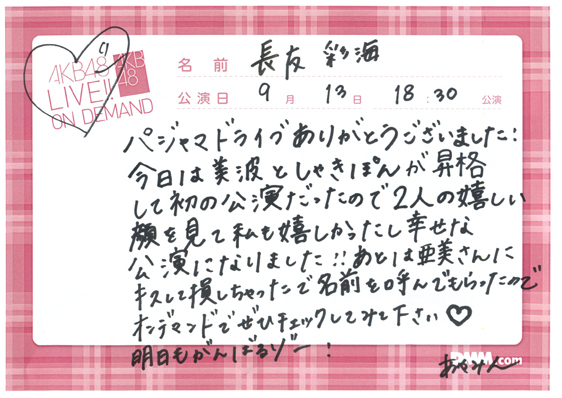 AKB48 AKB48
LIVE!!
ON DEMAND
名前 長友 彩海
公演日 9月 13日 18:30 公演
パジャマドライブありがとうございました!
今日は美波としゃきぽんが昇格
して初の公演だったので2人の嬉しい
顔を見て私も嬉しかったし幸せな
公演になりました!!あとは亜美さんに
キスして損しちゃったで名前を呼んでもらったので
オンデマンドでぜひチェックしてみて下さい♡
明日もがんばるゾー!
DMM.com
あやみん